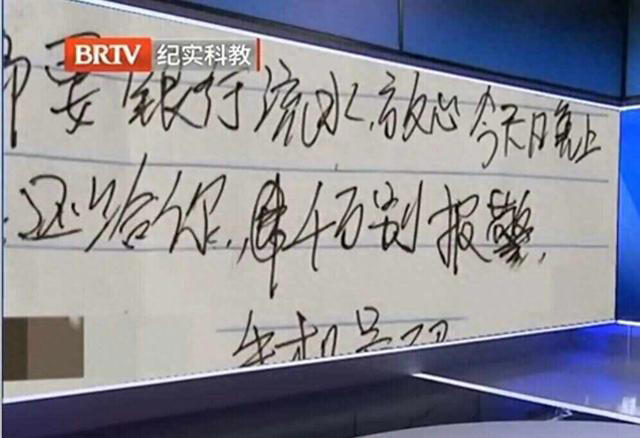 BRTV 纪实科教
要银行流水,放心今天日晚上
还给你,千万别报警,
手机号码